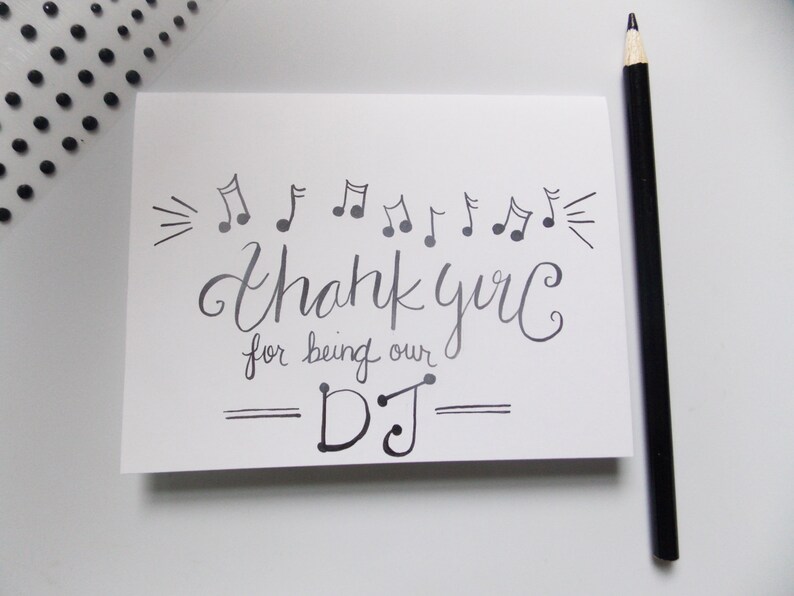 thank you
for being our
DJ